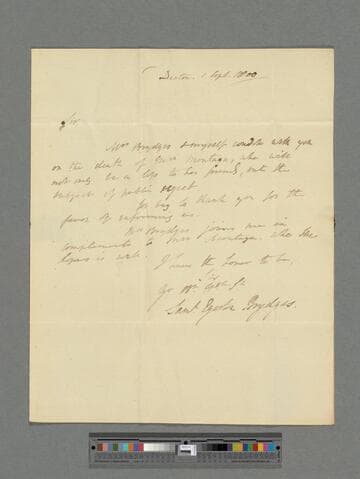 Denton. 1 Sept. 1800
Sir
Mrs Brydges & myself condole with you
on the death of Mrs Montagu, who will
not only be a loss to her friends, but the
subject of public regret.
We beg to thank you for the
favor of informing us.
Mrs Brydges joins me in
compliments to Mrs Montagu. who she
hopes is well.
I have the honor to be,
Sir
yr
Saml Egerton Brydges.